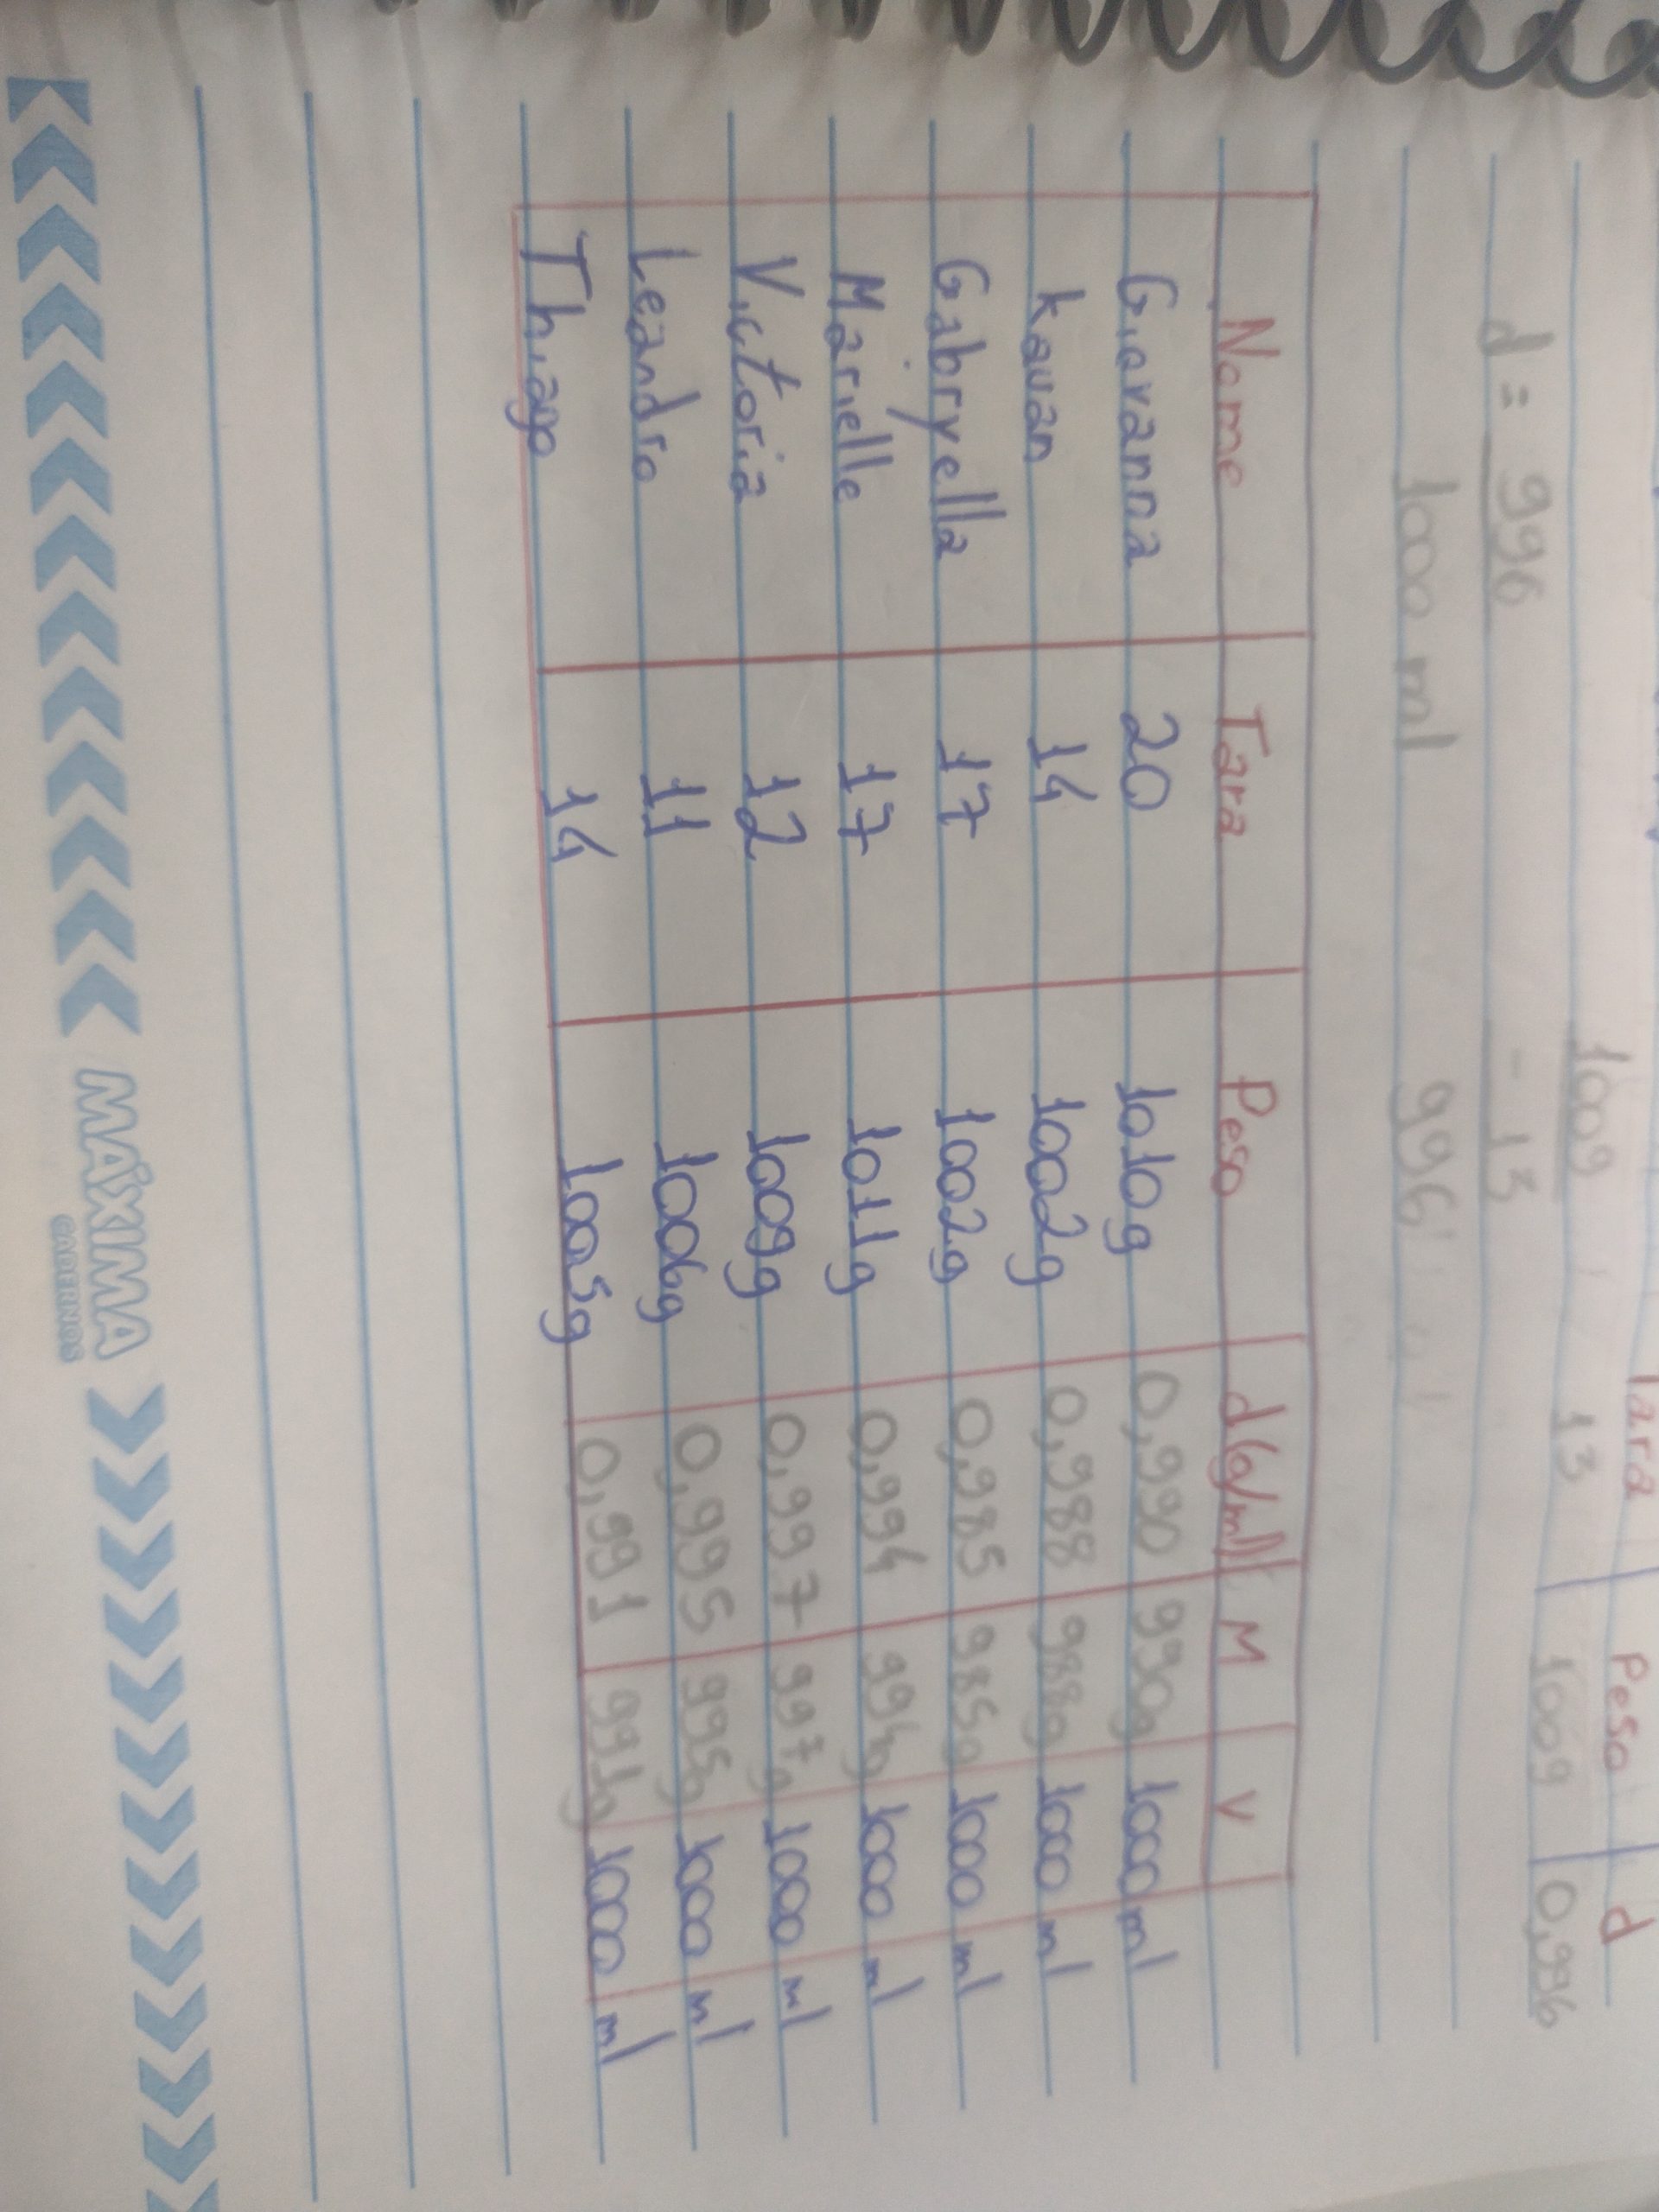 Tara Peso d
1009 13 1009 0,996
- 13
d = 996
1000 ml 996
Nome Tara Peso d(g/ml) M V
Giovanna 20 1010g 0,990 990g 1000 ml
Kauan 14 1002g 0,988 988g 1000 ml
Gabryella 17 1002g 0,985 985g 1000 ml
Marielle 17 1011g 0,994 994g 1000 ml
Victoria 12 1009g 0,997 997g 1000 ml
Leandro 11 1006g 0,995 995g 1000 ml
Thiago 14 1005g 0,991 991g 1000 ml
MÁXIMA
CADERNOS